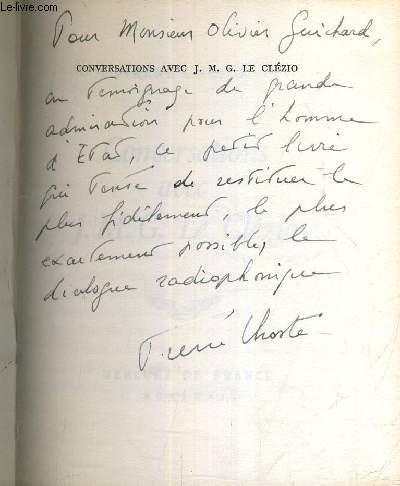 Le-livre.com
Pour Monsieur Olivier Guichard,
CONVERSATIONS AVEC J. M. G. LE CLÉZIO
en témoignage de grande
admiration pour l'homme
d'Etat, ce petit livre
qui tente de restituer le
plus fidèlement, le plus
exactement possible, le
dialogue radiophonique
Pierre Lhoste
MERCURE DE FRANCE